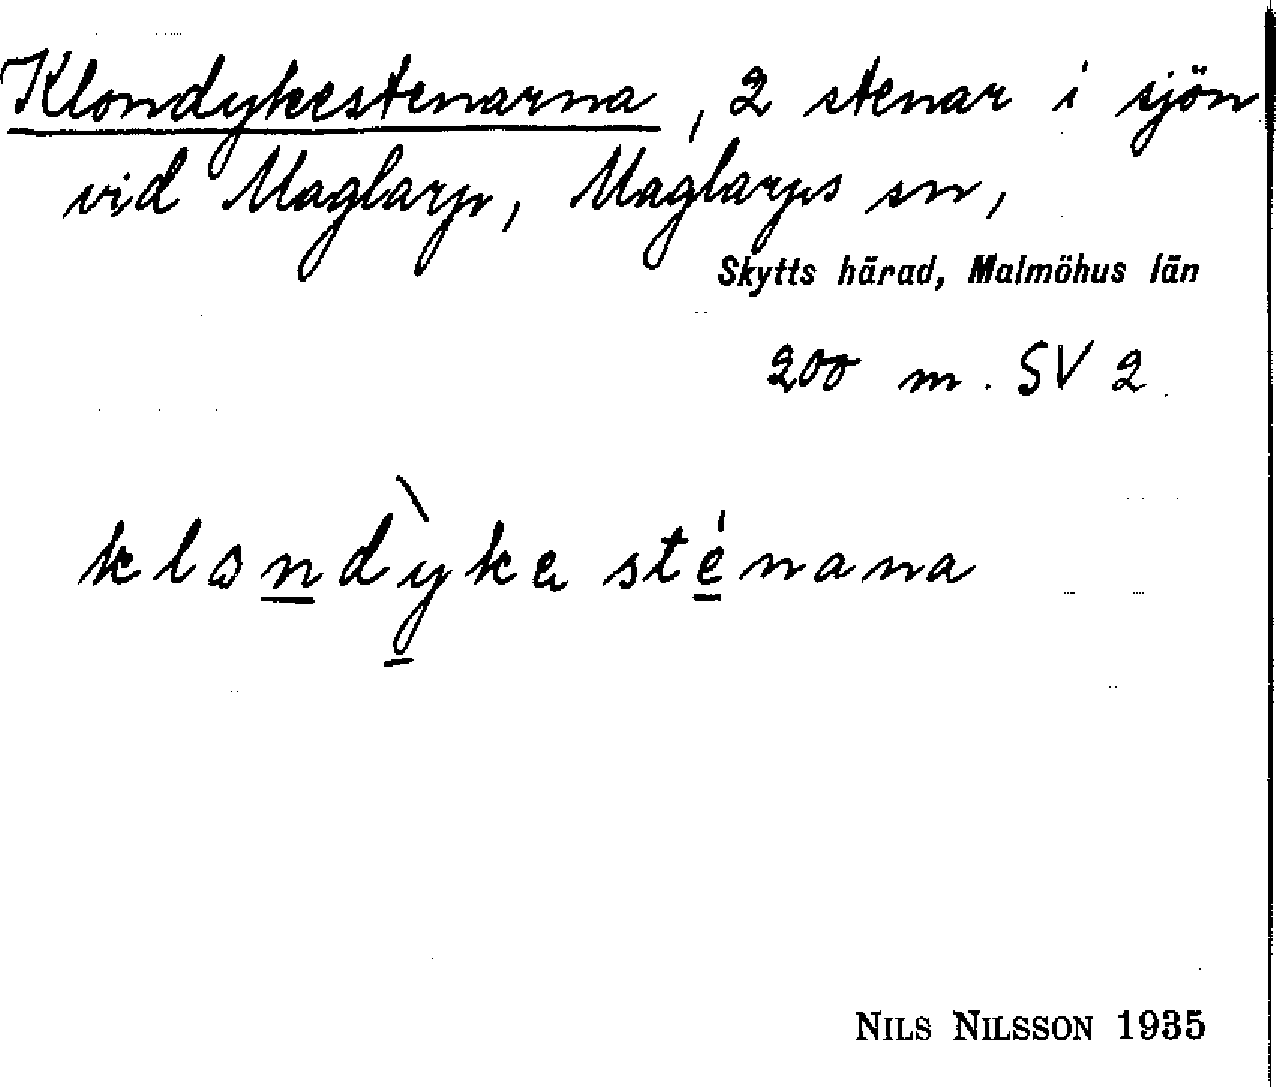 Klondykestenarna, 2 stenar i sjön
vid Maglarp, Maglarps sn,
Skytts härad, Malmöhus län
200 m. SV 2.
klondỳke sténana
NILS NILSSON 1935